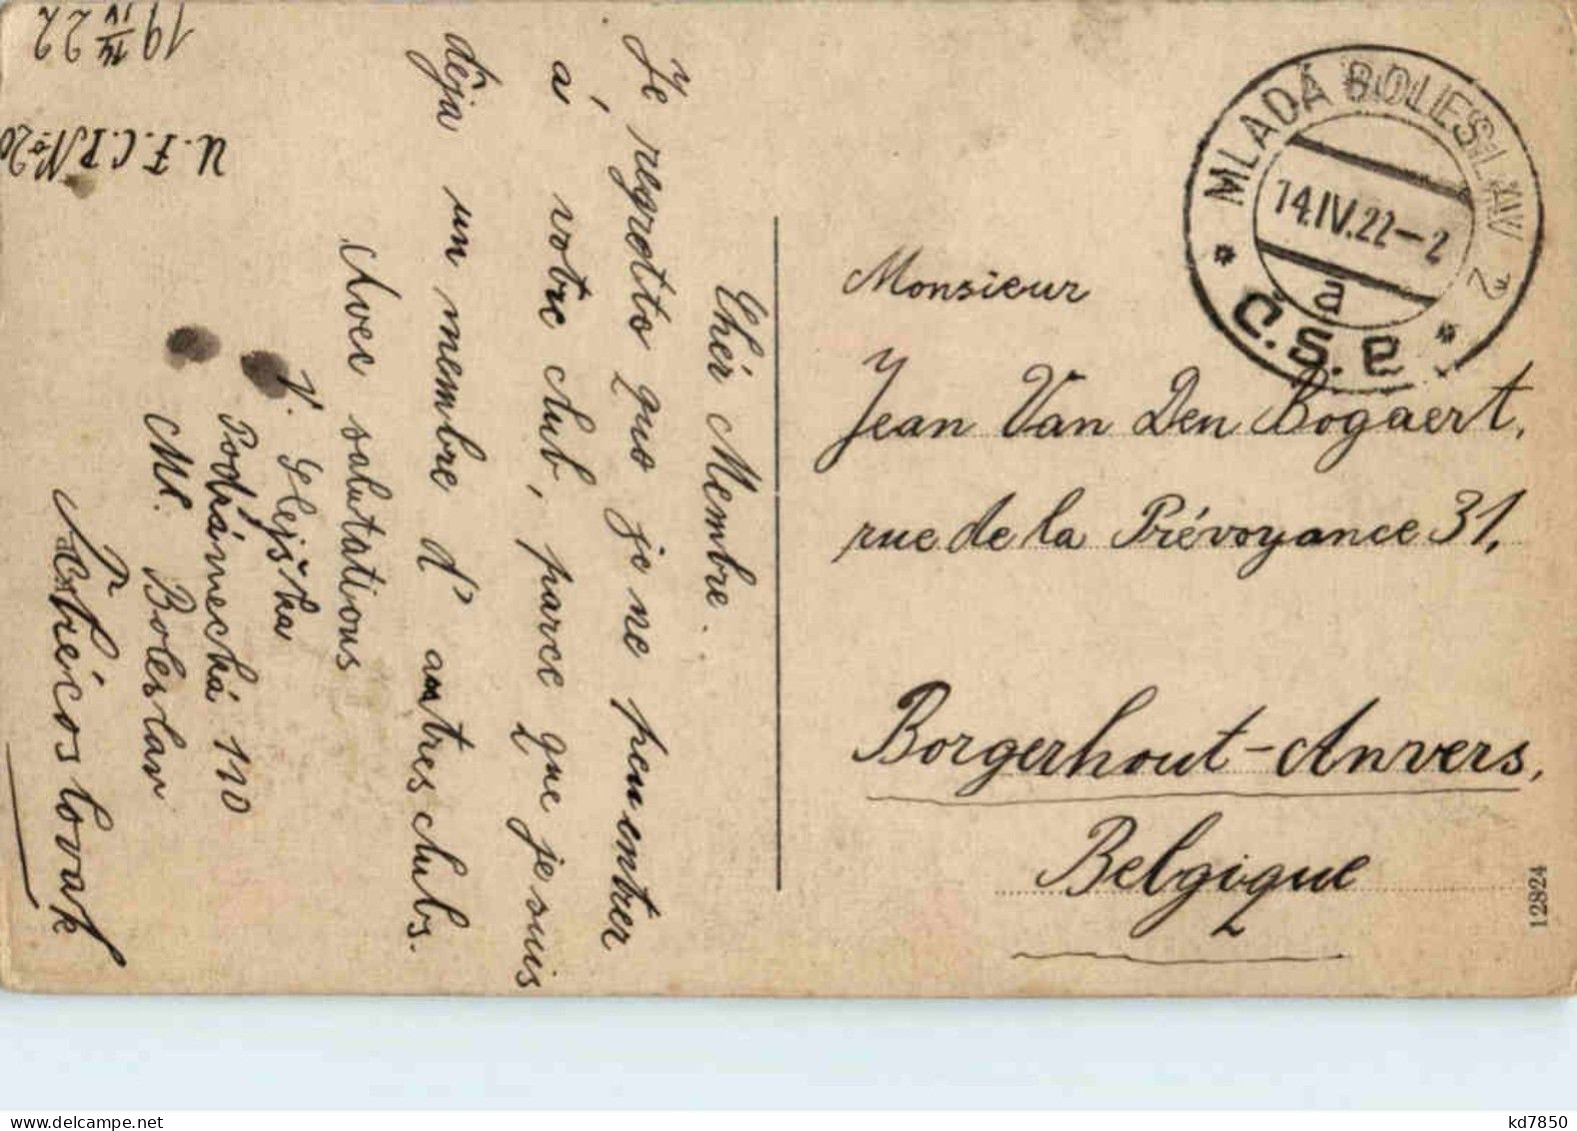 19 14/IV 22
U.F.C.P. No 20
Chér Membre.
Je regretto quo je ne peu entrer
á votre club, parce que je suis
déja un membre d' autres clubs.
Avec salutatious
V. Slejška
Podzámecká 110
Ml. Boleslav
MLADÁ BOLESLAV 2
14.IV.22-2
a
Č.S.P.
Monsieur
Jean Van Den Bogaert,
rue de la Prévoyance 31,
Borgerhout-Anvers,
Belgique
12824
kd7850